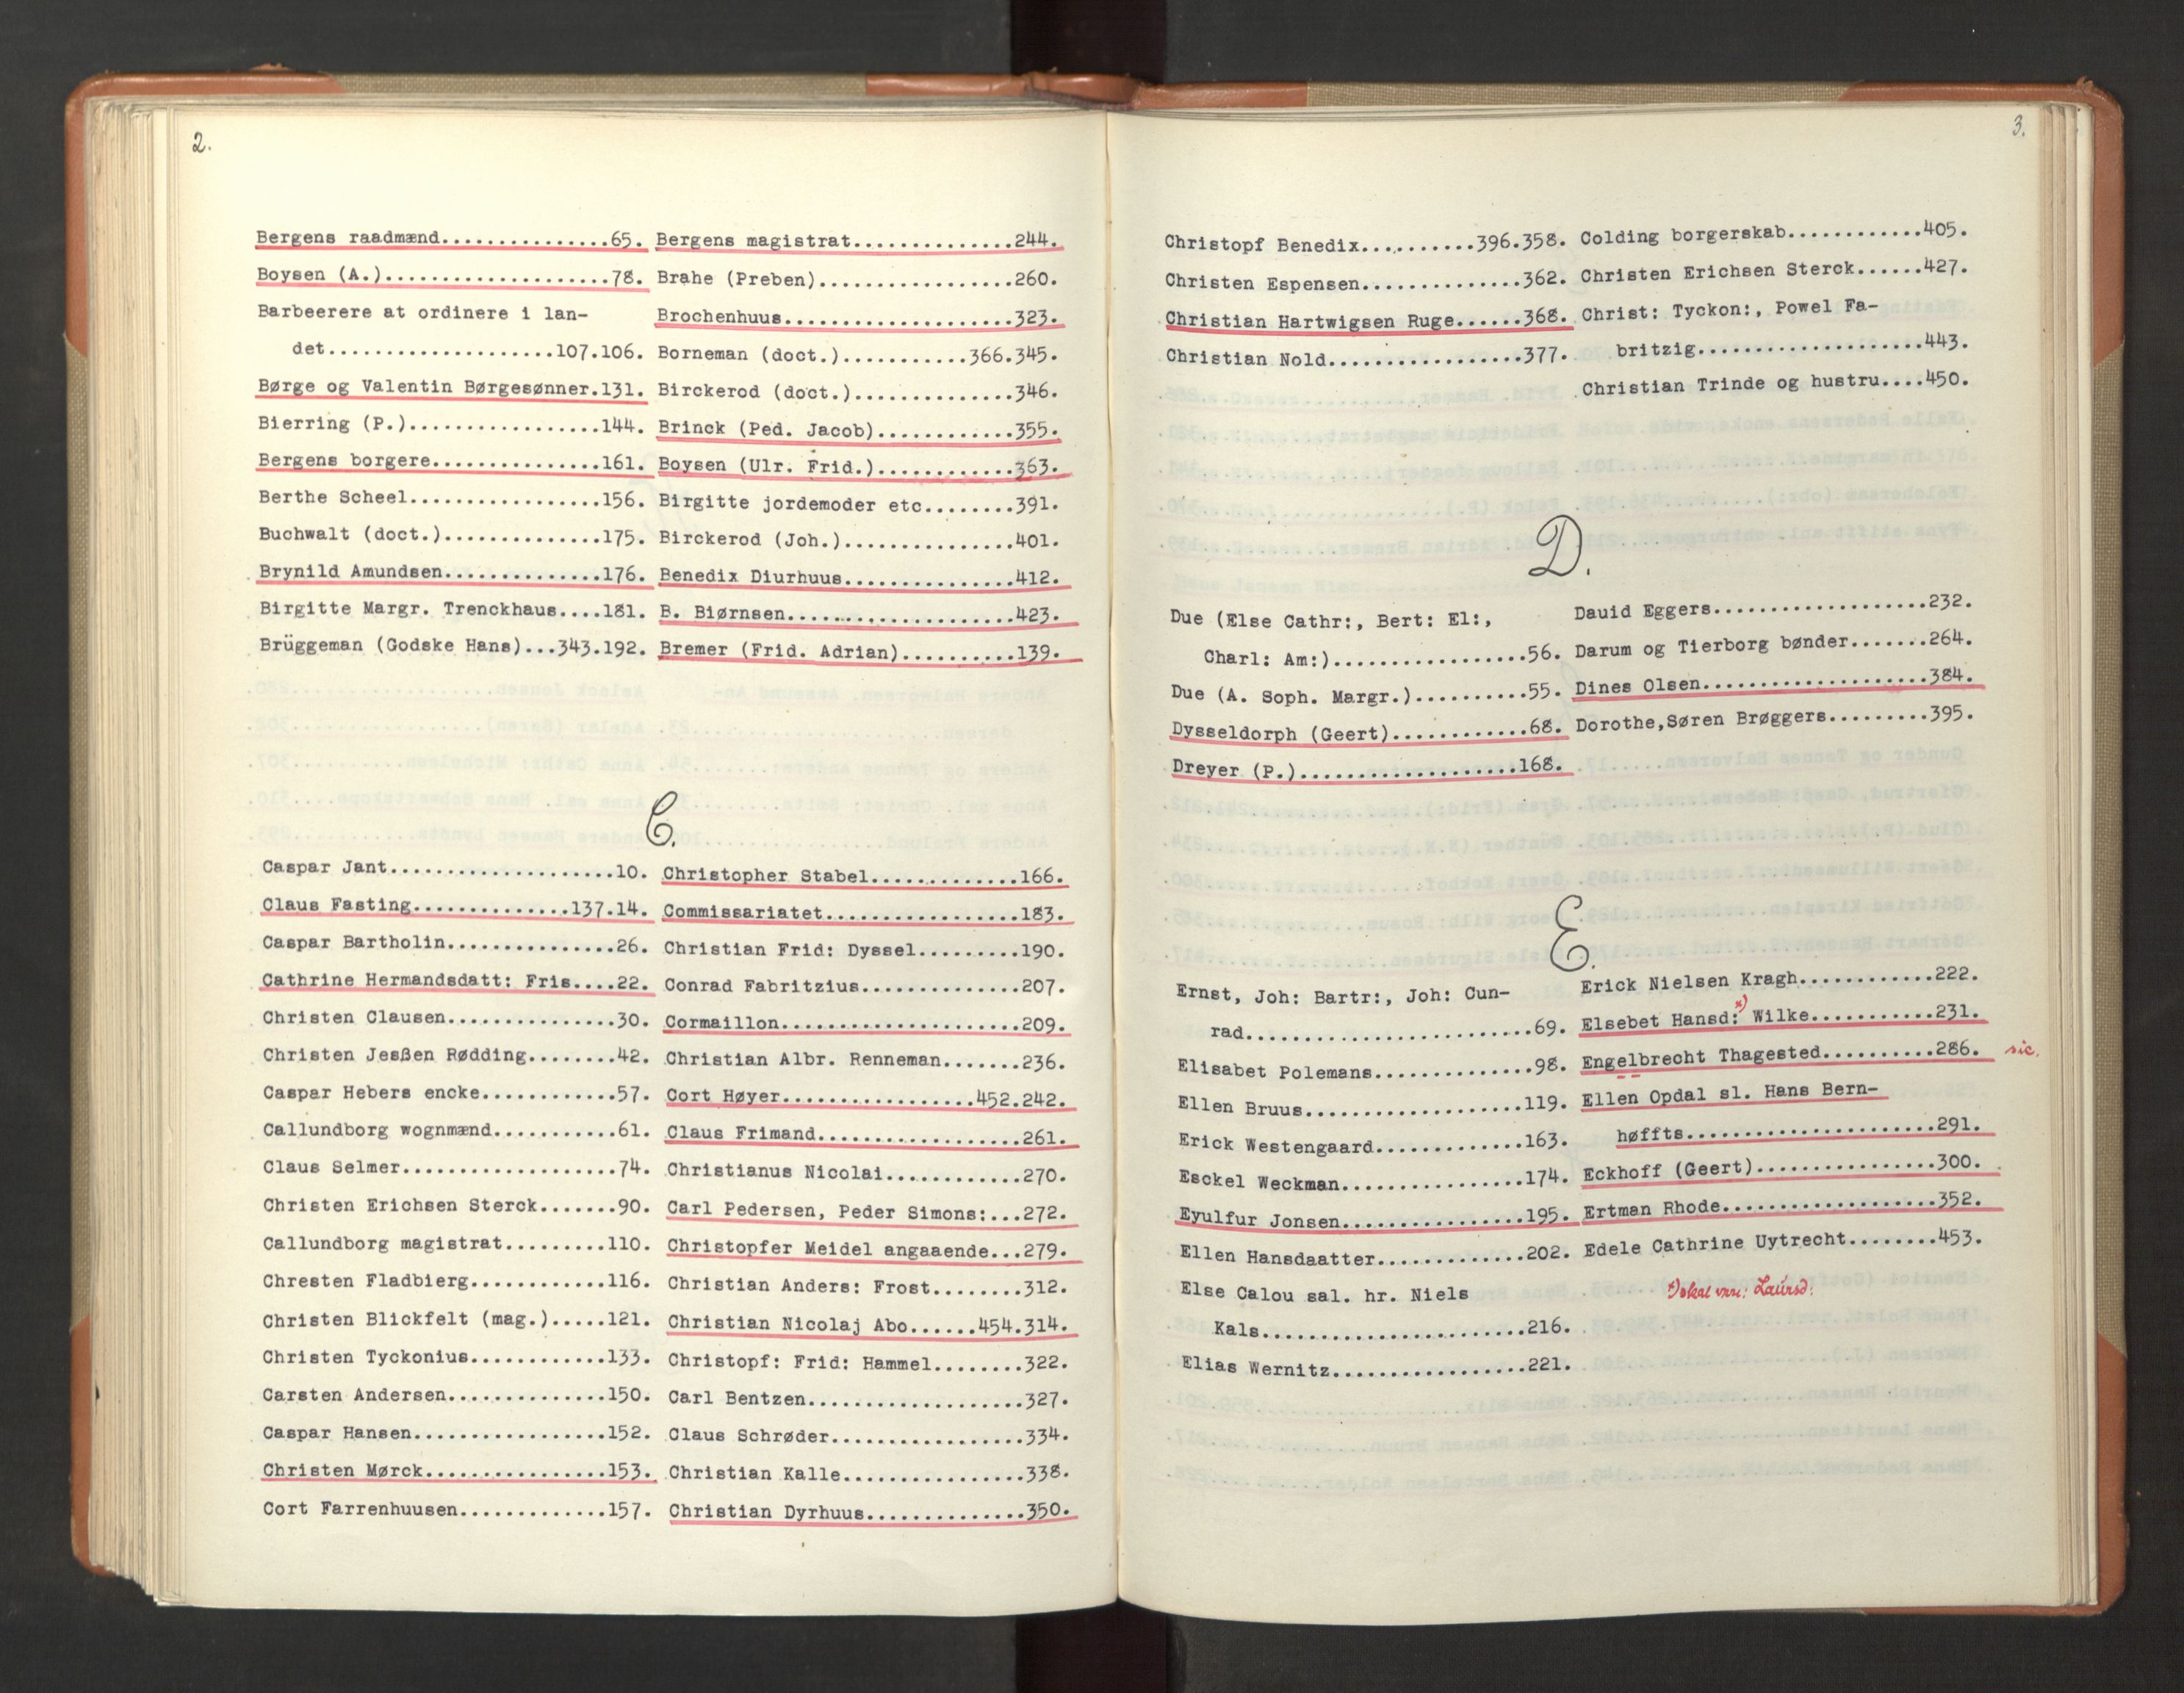 2.
Bergens raadmænd...............65.
Boysen (A.)....................78.
Barbeerere at ordinere i lan-
det....................107.106.
Børge og Valentin Børgesønner.131.
Bierring (P.).................144.
Bergens borgere...............161.
Berthe Scheel.................156.
Buchwalt (doct.)..............175.
Brynild Amundsen..............176.
Birgitte Margr. Trenckhaus....181.
Brüggeman (Godske Hans)...343.192.
Bergens magistrat..............244.
Brahe (Preben).................260.
Brochenhuus....................323.
Borneman (doct.)...........366.345.
Birckerod (doct.)..............346.
Brinck (Ped. Jacob)............355.
Boysen (Ulr. Frid.)............363.
Birgitte jordemoder etc........391.
Birckerod (Joh.)...............401.
Benedix Diurhuus...............412.
B. Biørnsen....................423.
Bremer (Frid. Adrian)..........139.
C.
Caspar Jant....................10.
Claus Fasting..............137.14.
Caspar Bartholin...............26.
Cathrine Hermandsdatt: Fris....22.
Christen Clausen...............30.
Christen Jesßen Rødding........42.
Caspar Hebers encke............57.
Callundborg wognmænd...........61.
Claus Selmer...................74.
Christen Erichsen Sterck.......90.
Callundborg magistrat.........110.
Chresten Fladbierg............116.
Christen Blickfelt (mag.).....121.
Christen Tyckonius............133.
Carsten Andersen..............150.
Caspar Hansen.................152.
Christen Mørck................153.
Cort Farrenhuusen.............157.
Christopher Stabel.............166.
Commissariatet.................183.
Christian Frid: Dyssel.........190.
Conrad Fabritzius..............207.
Cormaillon.....................209.
Christian Albr. Renneman.......236.
Cort Høyer.................452.242.
Claus Frimand..................261.
Christianus Nicolai............270.
Carl Pedersen, Peder Simons:...272.
Christopfer Meidel angaaende...279.
Christian Anders: Frost........312.
Christian Nicolaj Abo......454.314.
Christopf: Frid: Hammel........322.
Carl Bentzen...................327.
Claus Schrøder.................334.
Christian Kalle................338.
Christian Dyrhuus..............350.
3.
Christopf Benedix..........396.358.
Christen Espensen..............362.
Christian Hartwigsen Ruge......368.
Christian Nold.................377.
Colding borgerskab............405.
Christen Erichsen Sterck......427.
Christ: Tyckon:, Powel Fa-
britzig....................443.
Christian Trinde og hustru....450.
D.
Due (Else Cathr:, Bert: El:,
Charl: Am:).................56.
Due (A. Soph. Margr.)..........55.
Dysseldorph (Geert)............68.
Dreyer (P.)...................168.
Dauid Eggers...................232.
Darum og Tierborg bønder.......264.
Dines Olsen....................384.
Dorothe,Søren Brøggers.........395.
E.
Ernst, Joh: Bartr:, Joh: Cun-
rad.........................69.
Elisabet Polemans..............98.
Ellen Bruus...................119.
Erick Westengaard.............163.
Esckel Weckman................174.
Eyulfur Jonsen................195.
Ellen Hansdaatter.............202.
Else Calou sal. hr. Niels
Kals.......................216.
Elias Wernitz.................221.
Erick Nielsen Kragh............222.
Elsebet Hansd:*) Wilke...........231.
Engelbrecht Thagested..........286. sic.
Ellen Opdal sl. Hans Bern-
høffts......................291.
Eckhoff (Geert)................300.
Ertman Rhode...................352.
Edele Cathrine Uytrecht........453.
*) skal være: Laursd: